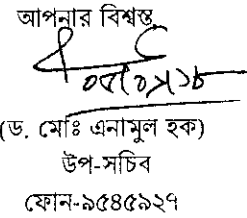 আপনার বিশ্বস্ত,
(ড. মোঃ এনামুল হক)
উপ-সচিব
ফোন-৯৫৪৫৯২৭